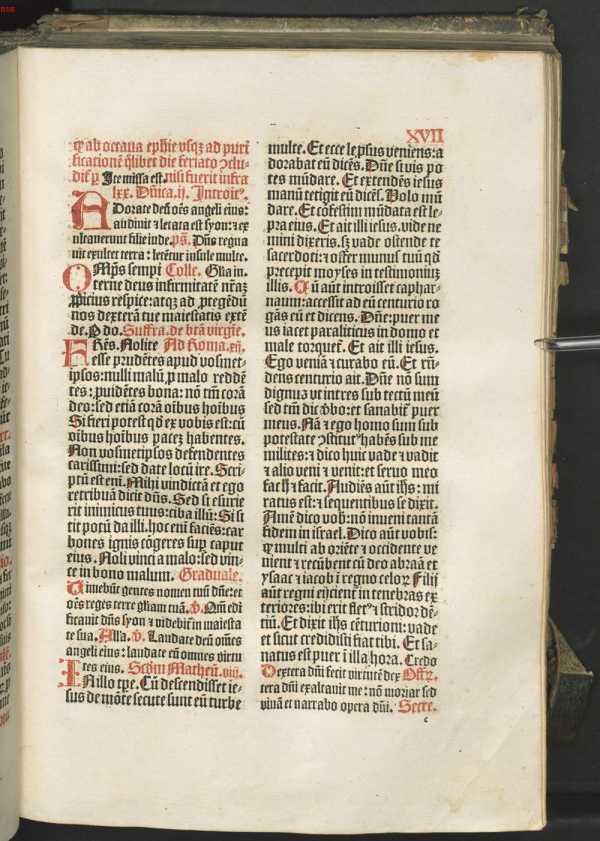 XVII
qͥ ab octaua ephie vsqꝫ ad puri
ficationē qͥlibet die feriato ↄclu-
dit᷑ ꝑ Ite missa est. nisi fuerit infra
lxx. Dñica .ij. Introit⁹.
ADorate deū oēs angeli eius:
audiuit ⁊ letata est syon: ⁊ ex
ultauerunt filie iude. ps̄. Dn̄s regna
uit exultet terra: letēt᷑ insule multe.
OMp̄s sempi Colle. Gl̄ia in.
terne deus infirmitatē nr̄aꝫ
ꝓpicius respice: atqꝫ ad ꝓtegēdū
nos dexterā tue maiestatis extē
de. P do. Suffra. de btā virgīe.
FRēs. Nolite Ad Roma. xij.
esse prudētes apud vosmet-
ipsos: nulli malū ꝓ malo reddē
tes: ꝓuidētes bona: nō tm̄ corā
deo: sed etiā corā oībus hoībus
Si fieri potest qd ex vobis est: cū
oībus hoībus pacēꝫ habentes.
Non vosmetipsos defendentes
carissimi: sed date locū ire. Scri-
ptū est eni. Mihi vindictā et ego
retribuā dicit dn̄s. Sed si esurie
rit inimicus tuus: ciba illū: Si si
tit potū da illi. hoc eni faciēs: car
bones ignis cōgeres suꝑ caput
eius. Noli vinci a malo: sed vin-
ce in bono malum. Graduale.
Timebūt gentes nomen tuū dn̄e: et
oēs reges terre gl̄iam tuā. v̄. Qm̄ edi
ficauit dn̄s syon ⁊ videbit᷑ in maiesta
te sua. Alla. v̄. Laudate deū om̄es
angeli eius: laudate eū omnes virtu
tes eius. Scd̄m Matheū. viij.
INillo tꝑe. Cū descendisset ie-
sus de mōte secute sunt eū turbe
multe. Et ecce leꝓsus veniens: a
dorabat eū dicēs. Dn̄e si vis po
tes mūdare. Et extendēs iesus
manū tetigit eū dicēs. Uolo mū
dare. Et cōfestim mūdata est le-
pra eius. Et ait illi iesus. vide ne
mini dixeris. sꝫ vade ostende te
sacerdoti: ⁊ offer munus tuū qd
precepit moyses in testimoniuꝫ
illis. Cū aūt introisset caphar-
naum: accessit ad eū centurio ro
gās eū et dicens. Dn̄e: puer me
us iacet paraliticus in domo et
male torquet᷑. Et ait illi iesus.
Ego veniā ⁊ curabo eū. Et rn̄-
dens centurio ait. Dn̄e nō sum
dignus vt intres sub tectū meū
sed tm̄ dic v̄bo: et sanabit᷑ puer
meus. Nā ⁊ ego homo sum sub
potestate ↄstitut⁹ habēs sub me
milites: ⁊ dico huic vade ⁊ vadit
⁊ alio veni ⁊ venit: et seruo meo
fac h̄ ⁊ facit. Audiēs aūt ih̄s: mi
ratus est: ⁊ sequentibus se dixit.
Amē dico vob̄: nō inueni tantā
fidem in israel. Dico aūt vobis:
qͥ multi ab oriēte ⁊ occidente ve
nient ⁊ recūbent cū deo abraā et
ysaac ⁊ iacob ī regno celoꝝ Filij
aūt regni eijcient᷑ in tenebras ex
teriores: ibi erit flet⁹ ⁊ stridor dē-
tiū. Et dixit ih̄s cēturioni: vade
et sicut credidisti fiat tibi. Et sa-
natus est puer ī illa hora. Credo
Dextera dn̄i fecit virtutē dex Offꝝ.
tera dn̄i exaltauit me: nō moriar sed
viuā et narrabo opera dn̄i. Secre.
c